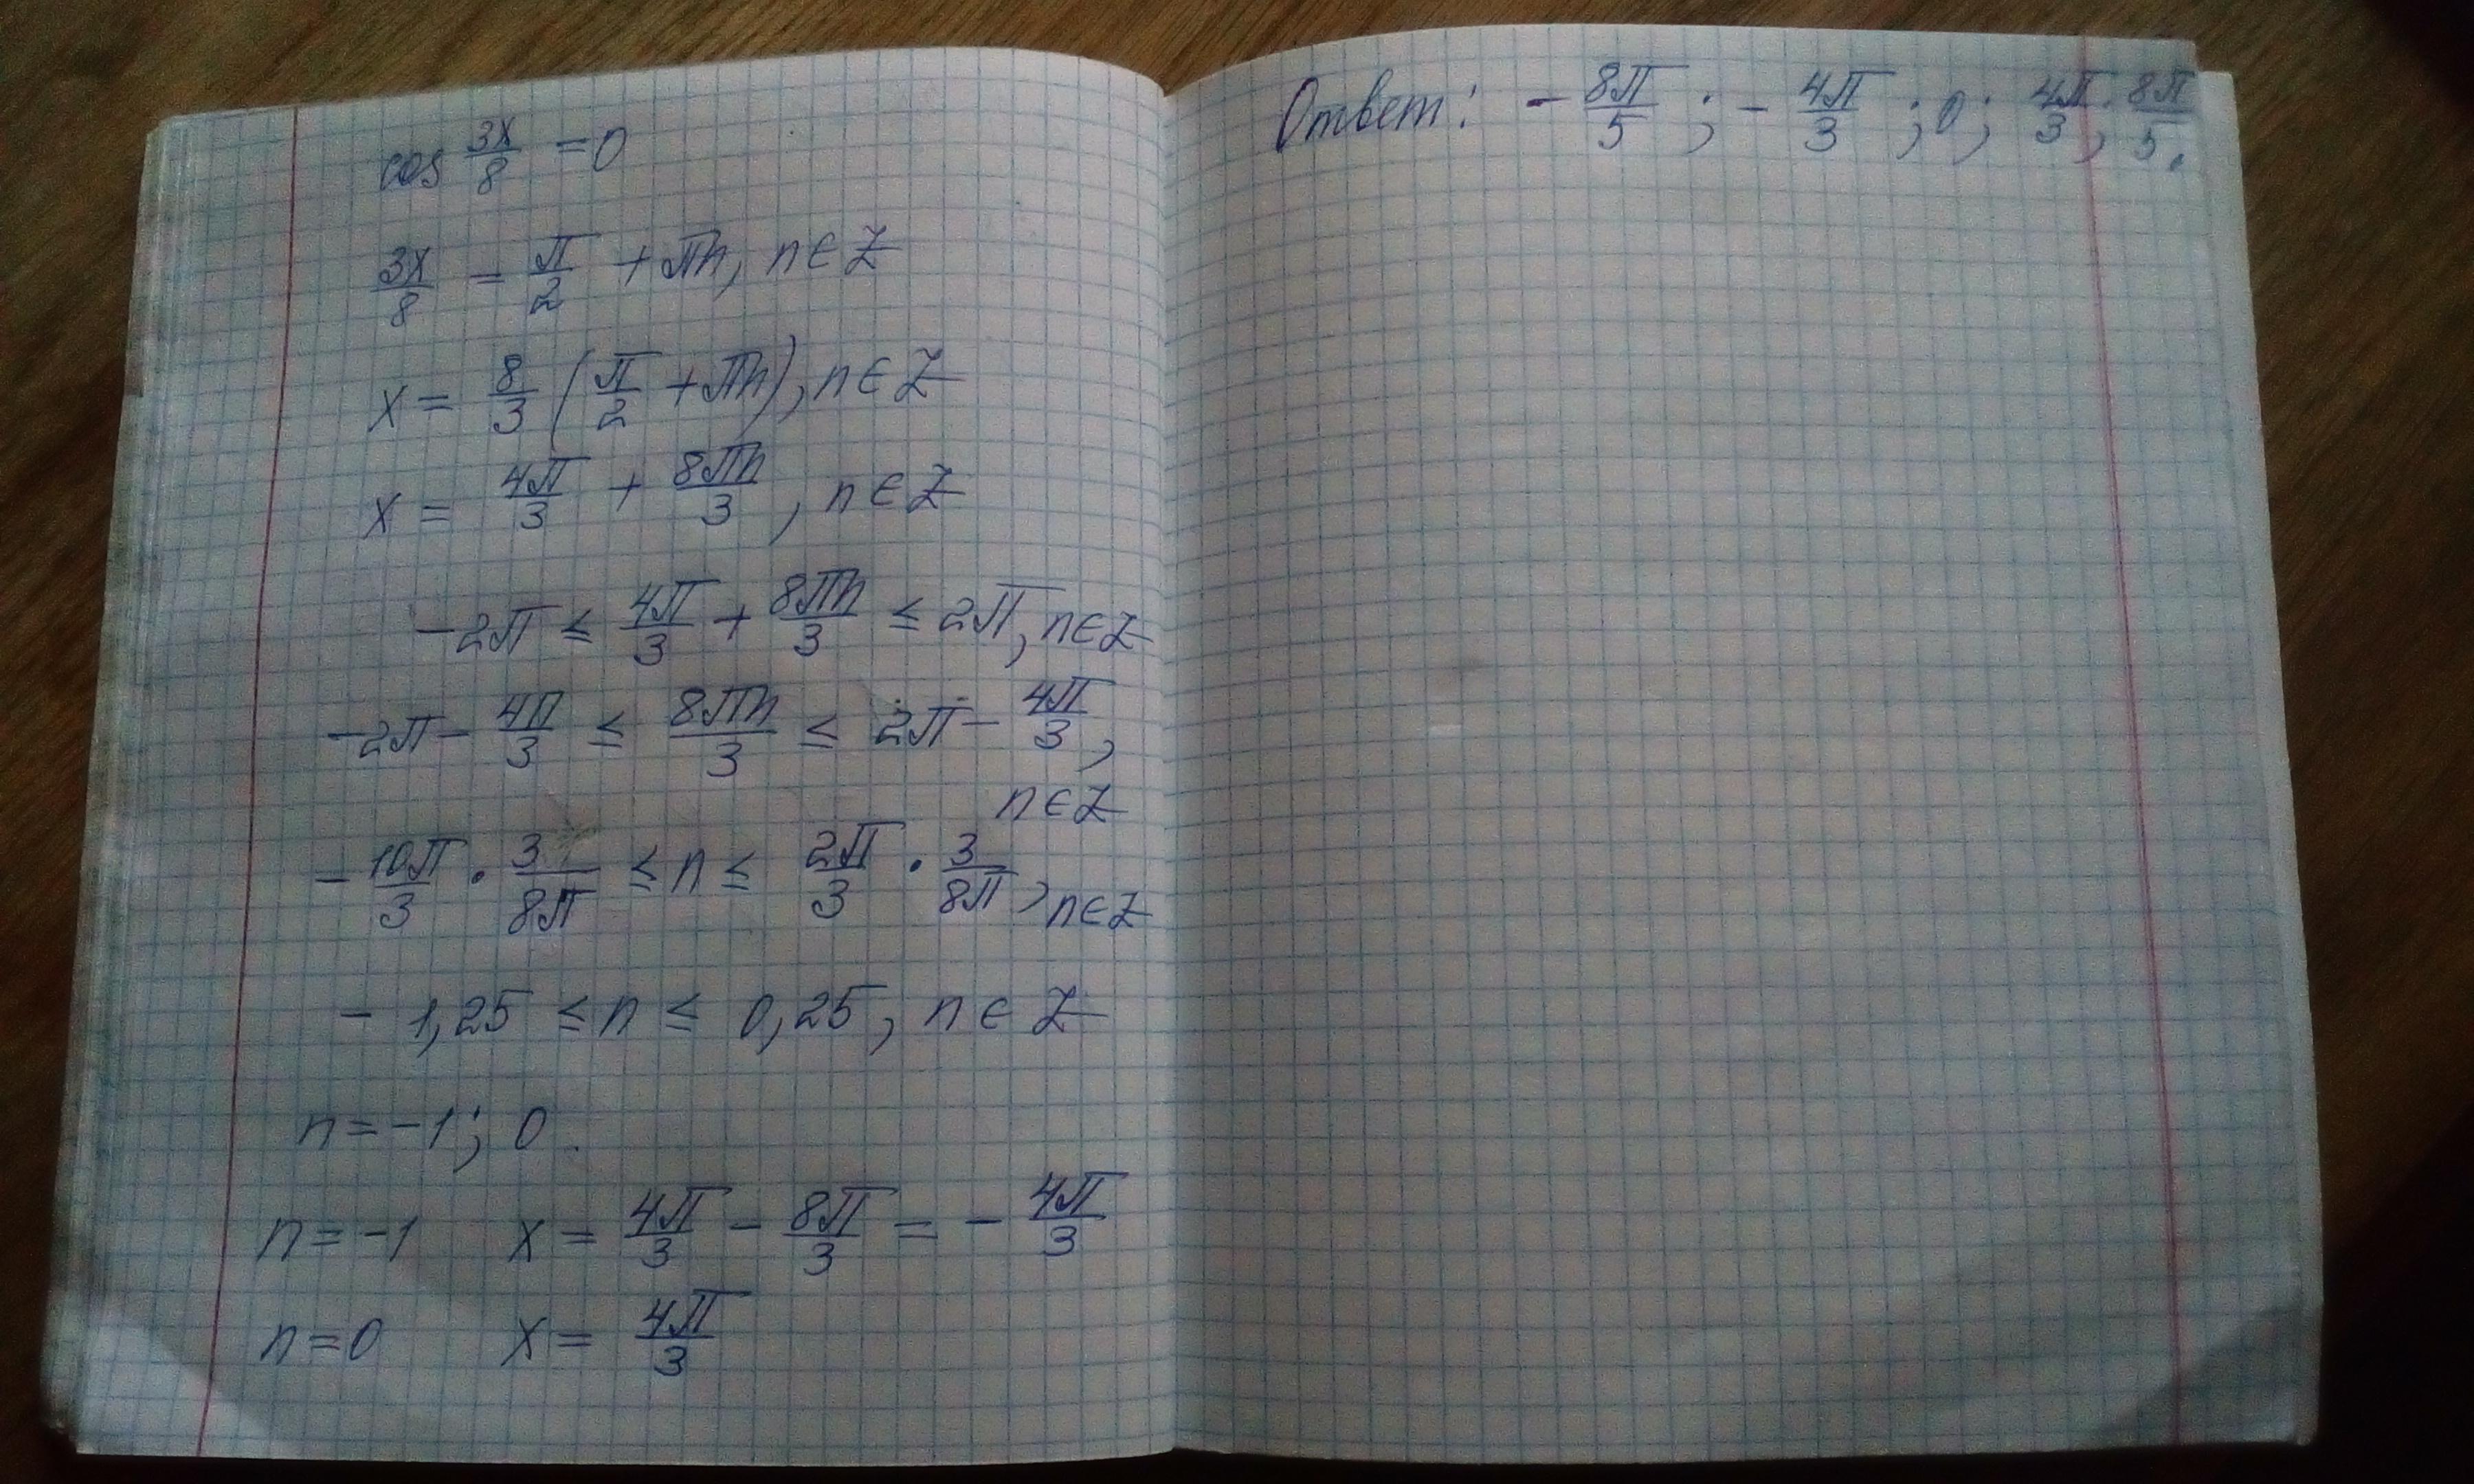 cos 3x/8 = 0
3x/8 = π/2 + πn, n ∈ Z
x = 8/3 (π/2 + πn), n ∈ Z
x = 4π/3 + 8πn/3, n ∈ Z
-2π ≤ 4π/3 + 8πn/3 ≤ 2π, n ∈ Z
-2π - 4π/3 ≤ 8πn/3 ≤ 2π - 4π/3,
n ∈ Z
- 10π/3 · 3/8π ≤ n ≤ 2π/3 · 3/8π, n ∈ Z
- 1,25 ≤ n ≤ 0,25, n ∈ Z
n = -1; 0.
n = -1 x = 4π/3 - 8π/3 = - 4π/3
n = 0 x = 4π/3
Ответ: - 8π/5; - 4π/3; 0; 4π/3; 8π/5.